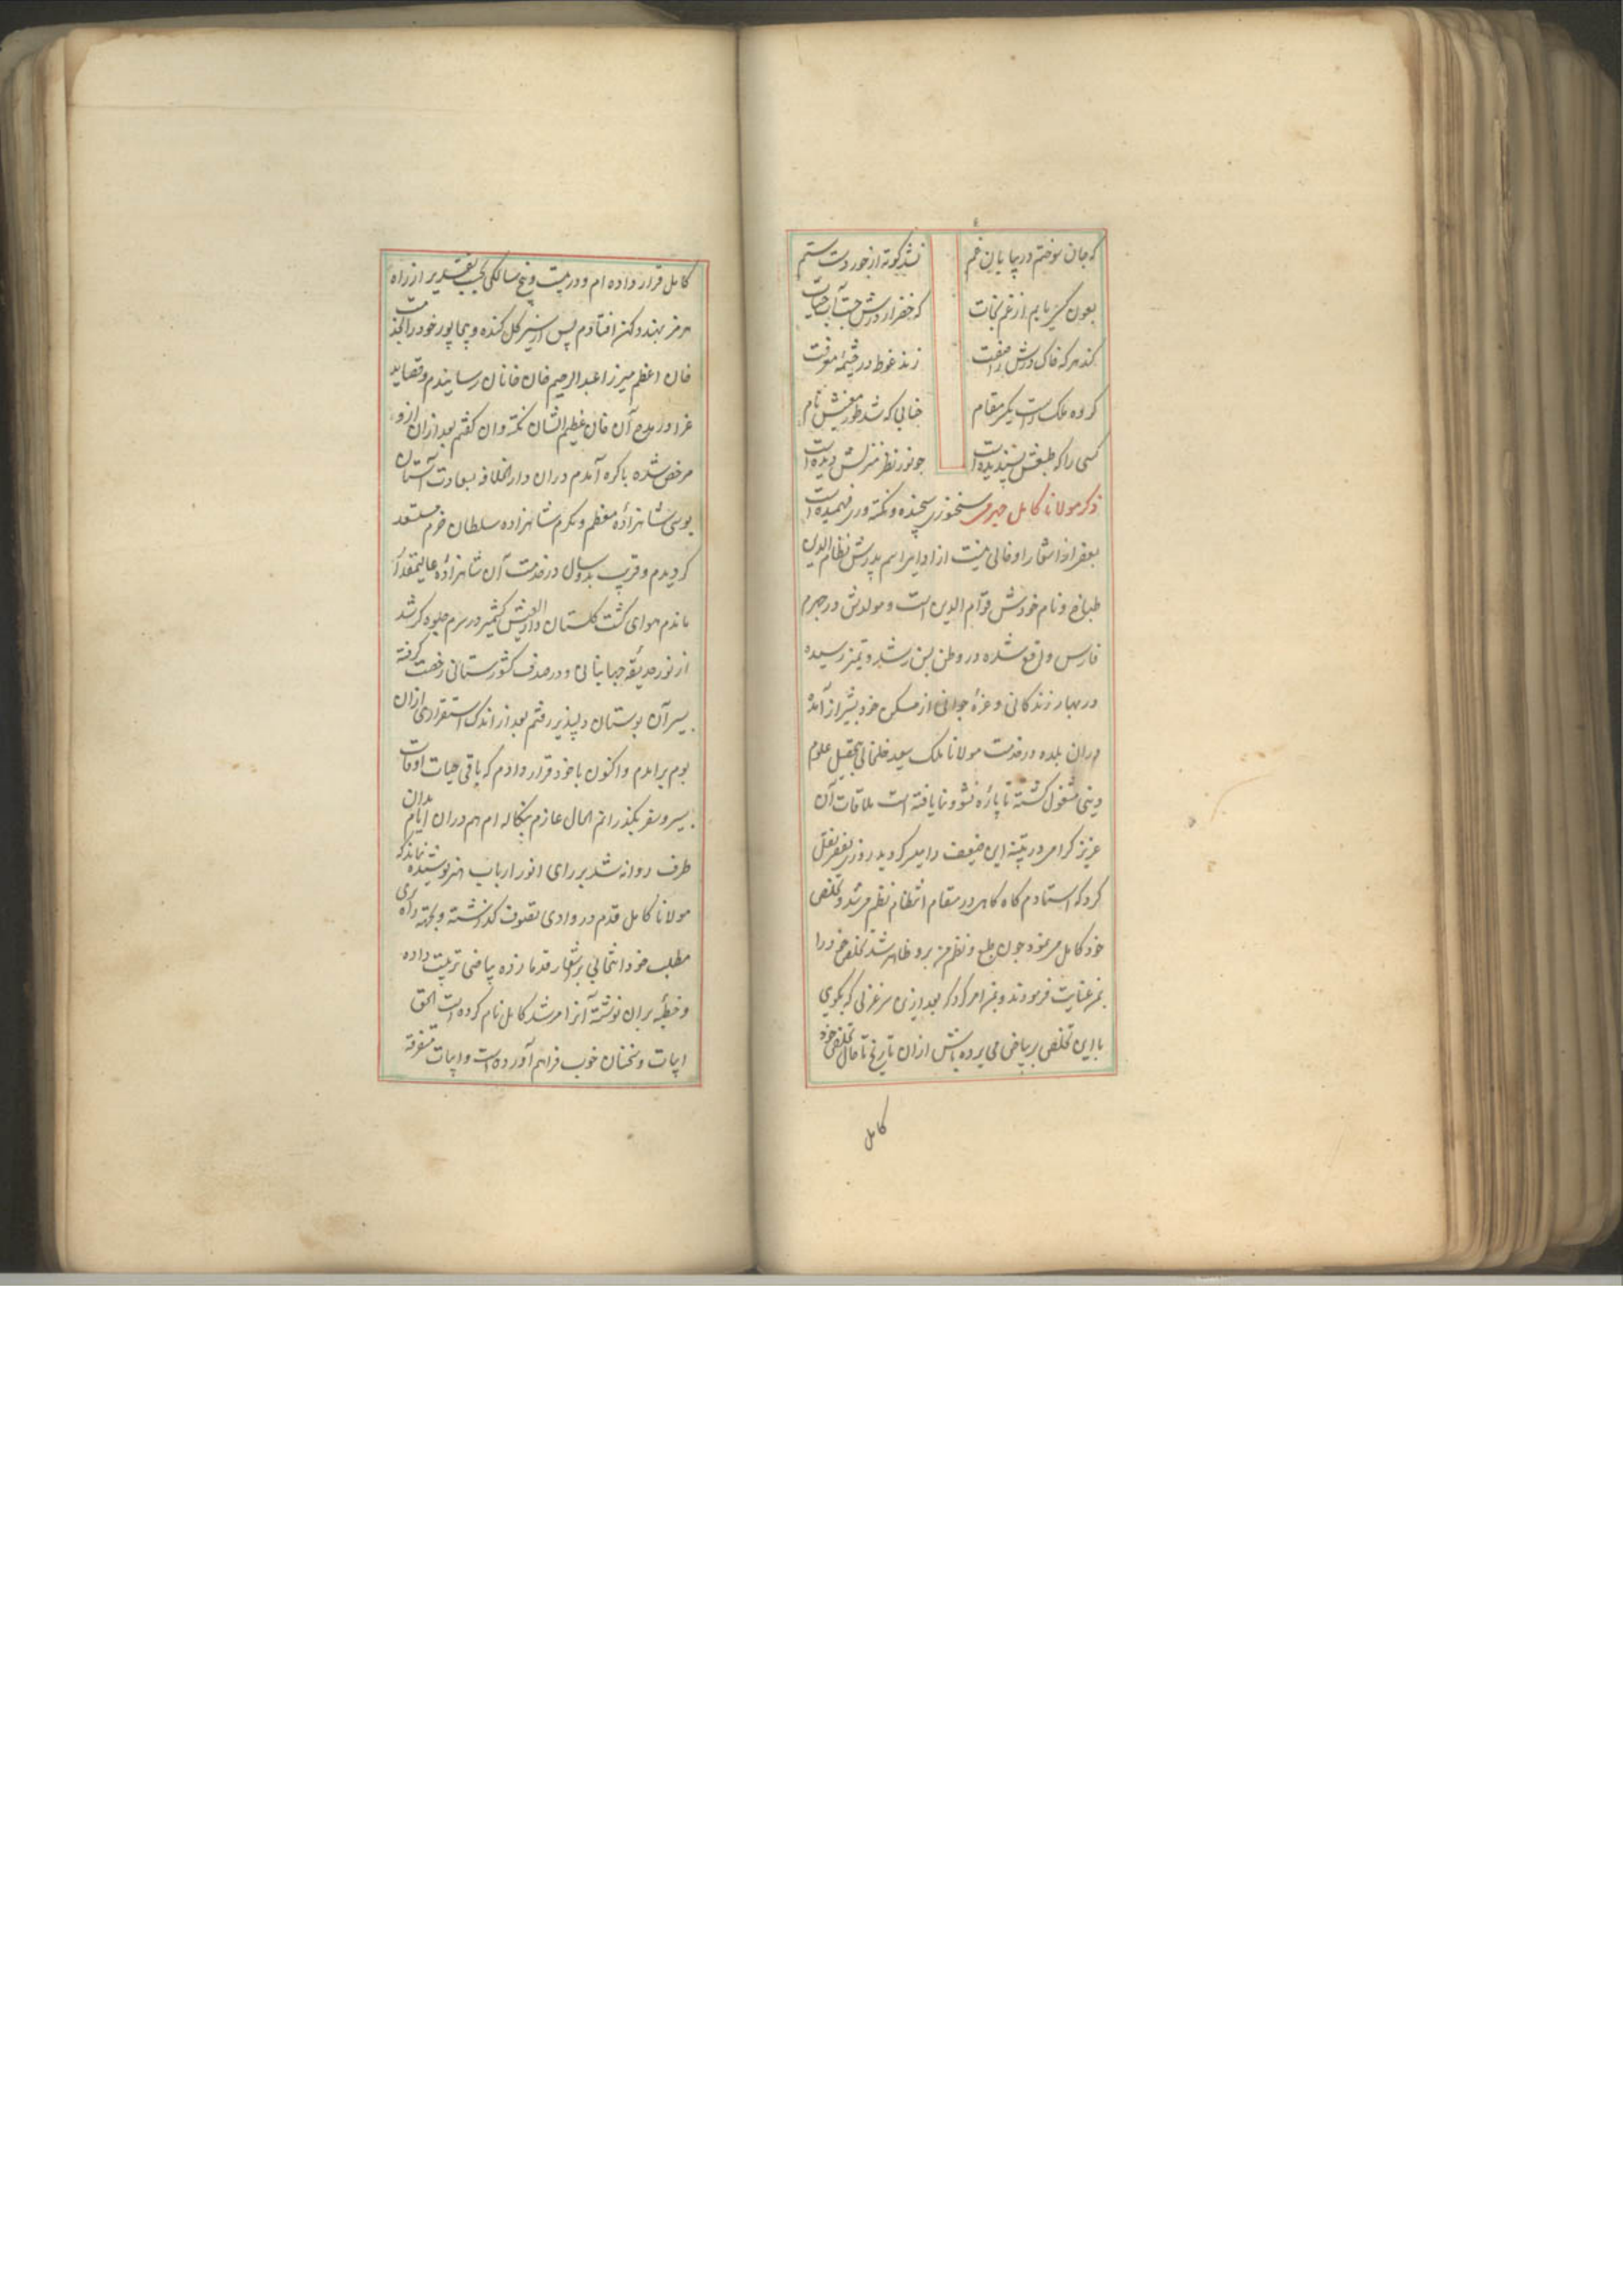 که جان سوختم در بیابان غم نشد کوته از خود دست ستم
بعون کسی یابم از غم نجات که خضر از درش جست آب حیات
کند هر که خاک درش را صفت زند غوطه در چشمهٔ معرفت
کرده ملک است یکسر مقام جنابی که شد طور معنیش نام
کسی را که طبعش پسندیده است چو نور نظر منزلش دیده است
ذکر مولانا کامل جهرمی سخنوری سنجیده و نکته وری فهمیده است
بعضی از اشعار او خالی نیست از ادا اما اسم پدرش نظام الدین
طباخ و نام خودش قوام الدین است و مولدش در جهرم
فارس واقع شده در وطن بسن رشد و تمیز رسیده
در بهار زندگانی و غرهٔ جوانی از مسکن خود بشیراز آمده
دران بلده در خدمت مولانا ملک سعید خلخالی بتحصیل علوم
دینی مشغول گشته تا پارهٔ نشو و نما یافته است ملاقات آن
عزیز گرامی در پتنه این ضعیف را میسر گردید روزی بفقیر نقل
کرد که استادم گاه گاهی در مقام انتظام نظم می شد و تخلص
خود کامل می نمود چون طبع و نظم من برو ظاهر شد تخلص خود را
بمن عنایت فرمودند و بمن امر کرد که بعد ازین هر غزلی که بگوی
با این تخلص بر بیاض می برده باش ازان تاریخ تا حال تخلص خود
کامل
کامل قرار داده ام و در بیست و پنج سالگی بحسب تقدیر از راه
هرمز بهند دکن افتادم پس از سیر گل کنده و بیجاپور خود را بخدمت
خان اعظم میرزا عبدالرحیم خان خانان رسانیدم و قصاید
غرا در مدح آن خان عظیم الشان نکته دان گفتم بعد ازان ازو
مرخص شده باگره آمدم دران دار الخلافه بسعادت آستان
بوسی شاهزادهٔ معظم و مکرم شاهزاده سلطان خرم مستعد
گردیدم و قریب بدو سال در خدمت آن شاهزادهٔ عالیمقدار
ماندم هوای گشت گلستان کشمیر در سرم جلوه گر شد
از نور حدیقهٔ جهانبانی و در صدف کشورستانی رخصت گرفته
بسیر آن بوستان دلپذیر رفتم بعد از اندک استقراری ازان
بوم برآمدم و اکنون با خود قرار دادم که باقی حیات اوقات
بسیر و سفر بگذرانم الحال عازم بنگاله ام هم دران ایام بدان
طرف روانه شد بر رای انور ارباب هنر پوشیده نماند که
مولانا کامل قدم در وادی تصوف گذاشته و بجهة راه برای
مطلب خود انتخابی بر اشعار قدما زده بیاضی ترتیب داده
و خطبه بران نوشته آنرا مرشد کامل نام کرده است الحق
ابیات و سخنان خوب فراهم آورده است و ابیات متفرقه